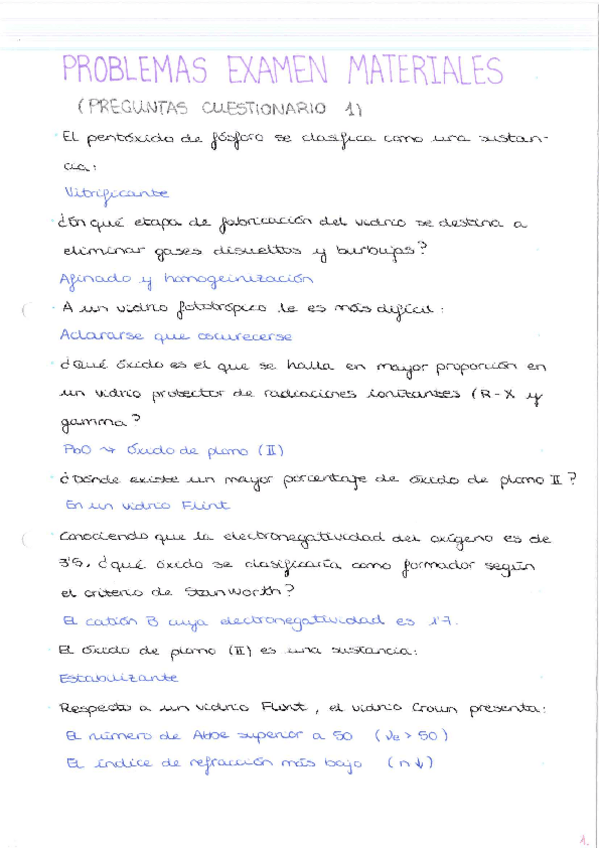 PROBLEMAS EXAMEN MATERIALES
(PREGUNTAS CUESTIONARIO 1)
El pentóxido de fósforo se clasifica como una sustan-
cia:
Vitrificante
¿En qué etapa de fabricación del vidrio se destina a
eliminar gases disueltos y burbujas?
Afinado y homogeinización
A un vidrio fototrópico le es más difícil:
Aclararse que oscurecerse
¿Qué óxido es el que se halla en mayor proporción en
un vidrio protector de radiaciones ionitantes (R-X y
gamma?
PbO → óxido de plomo (II)
¿Dónde existe un mayor porcentaje de óxido de plomo II?
En un vidrio Flint
Conociendo que la electronegatividad del oxígeno es de
3'5, ¿qué óxido se clasificaría como formador según
el criterio de Stanworth?
El catión B cuya electronegatividad es 1'7.
El óxido de plomo (II) es una sustancia:
Estabilizante
Respecto a un vidrio Flint, el vidrio Crown presenta:
El número de Abbe superior a 50 (νe > 50)
El índice de refracción más bajo (n↓)
1.